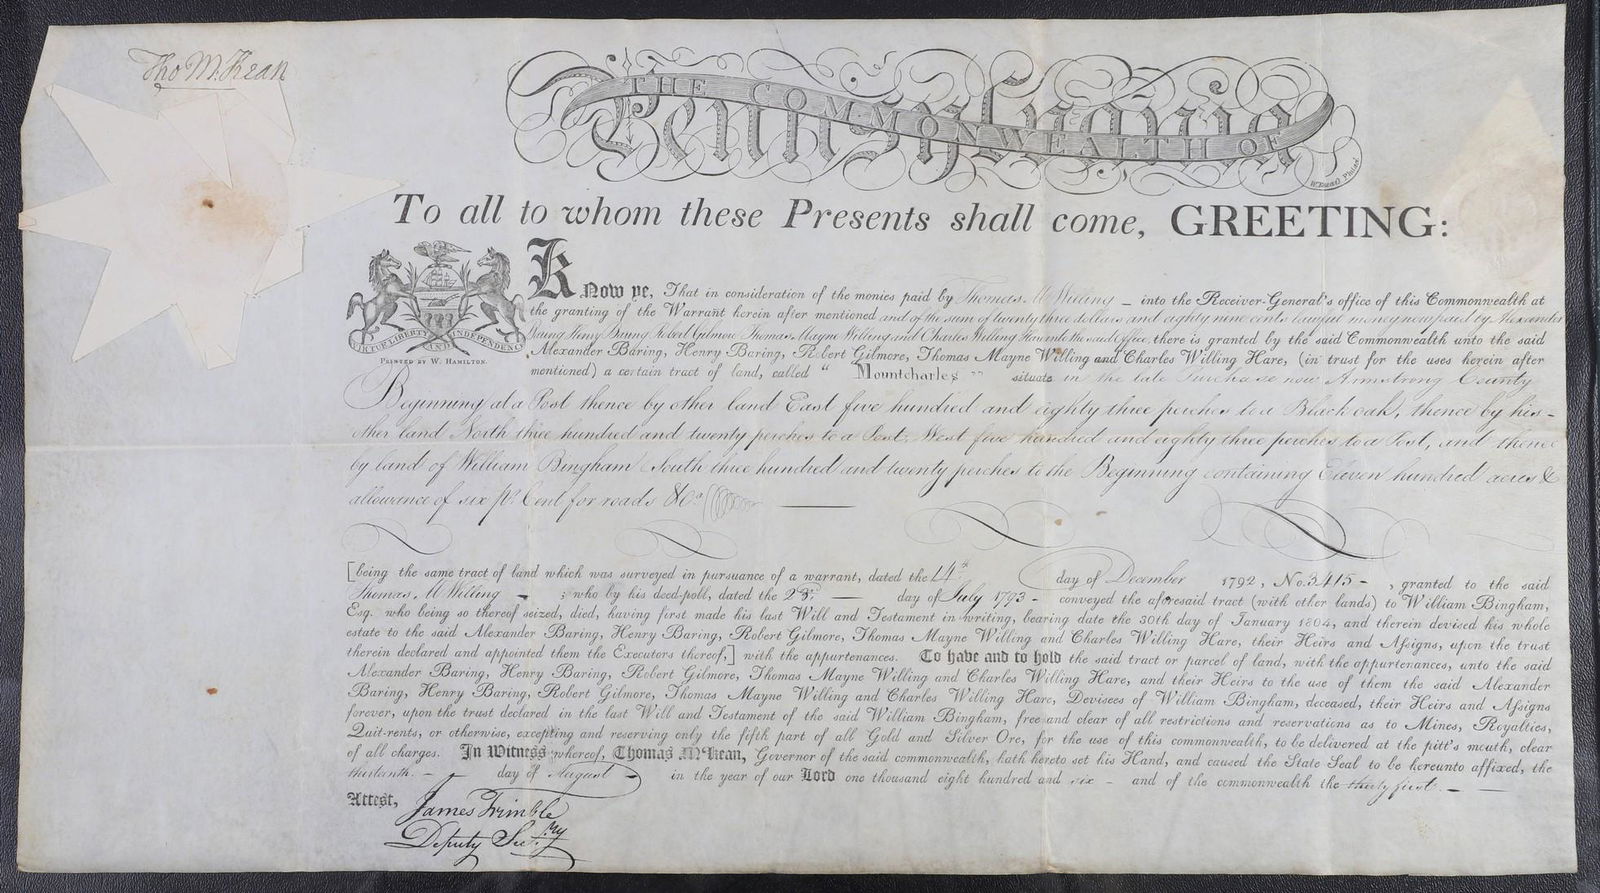 Tho M:Kean
THE COMMONWEALTH OF
Pennsylvania
W. Kneass Philad.
To all to whom these Presents shall come, GREETING:
VIRTUE LIBERTY AND INDEPENDENCE
PRINTED BY W. HAMILTON.
Know ye, That in consideration of the monies paid by Thomas M Willing – into the Receiver-General's office of this Commonwealth at
the granting of the Warrant herein after mentioned and of the sum of twenty three dollars and eighty nine cents lawful money now paid by Alexander
Baring Henry Baring Robert Gilmore Thomas Mayne Willing and Charles Willing Hare into the said Office, there is granted by the said Commonwealth unto the said
Alexander Baring, Henry Baring, Robert Gilmore, Thomas Mayne Willing and Charles Willing Hare, (in trust for the uses herein after
mentioned) a certain tract of land, called " Mountcharles " situate in the late Purchase now Armstrong County
Beginning at a Post thence by other land East five hundred and eighty three perches to a Black oak, thence by his –
other land North three hundred and twenty perches to a Post, West five hundred and eighty three perches to a Post, and thence
by land of William Bingham South three hundred and twenty perches to the Beginning containing Eleven hundred acres &
allowance of six pr. Cent for roads &c.a
[being the same tract of land which was surveyed in pursuance of a warrant, dated the 14th day of December 1792, No. 3415 – , granted to the said
Thomas M Willing – ; who by his deed-poll, dated the 23rd — day of July 1793 – conveyed the aforesaid tract (with other lands) to William Bingham,
Esq. who being so thereof seized, died, having first made his last Will and Testament in writing, bearing date the 30th day of January 1804, and therein devised his whole
estate to the said Alexander Baring, Henry Baring, Robert Gilmore, Thomas Mayne Willing and Charles Willing Hare, their Heirs and Aſsigns, upon the trust
therein declared and appointed them the Executors thereof,] with the appurtenances. To have and to hold the said tract or parcel of land, with the appurtenances, unto the said
Alexander Baring, Henry Baring, Robert Gilmore, Thomas Mayne Willing and Charles Willing Hare, and their Heirs to the use of them the said Alexander
Baring, Henry Baring, Robert Gilmore, Thomas Mayne Willing and Charles Willing Hare, Devisees of William Bingham, deceased, their Heirs and Aſsigns
forever, upon the trust declared in the last Will and Testament of the said William Bingham, free and clear of all restrictions and reservations as to Mines, Royalties,
Quit-rents, or otherwise, excepting and reserving only the fifth part of all Gold and Silver Ore, for the use of this commonwealth, to be delivered at the pitt's mouth, clear
of all charges. In Witness whereof, Thomas M'Kean, Governor of the said commonwealth, hath hereto set his Hand, and caused the State Seal to be hereunto affixed, the
thirteenth. – day of August in the year of our Lord one thousand eight hundred and six – and of the commonwealth the thirty first. – —
Attest,
James Trimble
Deputy Sec.ry